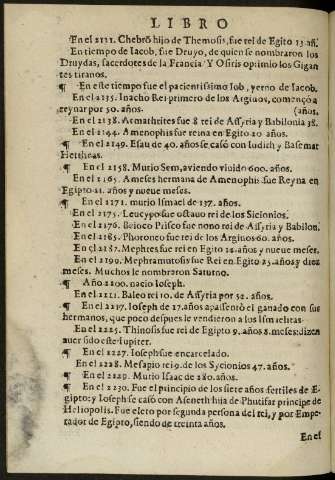 LIBRO
En el 2111. Chebrõ hijo de Themosis, fue rei de Egito 13 añ.
En tiempo de Iacob, fue Druyo, de quien se nombraron los
Druydas, sacerdotes de la Francia. Y Osiris oprimio los Gigan
tes tiranos.
¶ En este tiempo fue el pacientissimo Iob, yerno de Iacob.
En el 2135. Inacho Rei primero de los Argiuos, começò a
reynar por 50. años. (años.
En el 2138. Armathrites fue 8 rei de Assyria y Babilonia 38.
En el 2144. Amenophis fue reina en Egito 20 años.
¶ En el 2149. Esau de 40. años se casò con Iudich y Basemat
Hettheas.
¶ En el 2158. Murio Sem, aviendo vivido 600. años.
En el 2165. Ameses hermana de Amenophis fue Reyna en
Egipto 21. años y nueue meses.
¶ En el 2171. murio Ismael de 137. años.
En el 2175. Leucypo fue octauo rei de los Sicionios.
En el 2176. Beloco Prisco fue nono rei de Assyria y Babilon.
En el 2185. Phoroneo fue rei de los Arginos 60. años.
En el 2187. Mephres fue rei en Egito 12. años y nueve meses.
En el 2199. Mephramutosis fue Rei en Egito 25. años y diez
meses. Muchos le nombraron Saturno.
¶ Año 2200. nacio Ioseph.
En el 2211. Baleo rei 10. de Assyria por 52. años.
¶ En el 2217. Ioseph de 17. años apascentò el ganado con sus
hermanos, que poco despues le vendieron a los Ismaelitas.
En el 2225. Thinosis fue rei de Egipto 9. años 8. meses: dizen
auer sido este Iupiter.
¶ En el 2227. Ioseph fue encarcelado.
En el 2228. Mesapio rei 9. de los Sycionios 47. años.
¶ En el 2229. Murio Isaac de 180. años.
¶ En el 2230. Fue el principio de los siete años fertiles de E-
gipto: y Ioseph se casò con Aseneth hija de Phutifar principe de
Heliopolis. Fue electo por segunda persona del rei, y por Empe-
rador de Egipto, siendo de treinta años.
En el